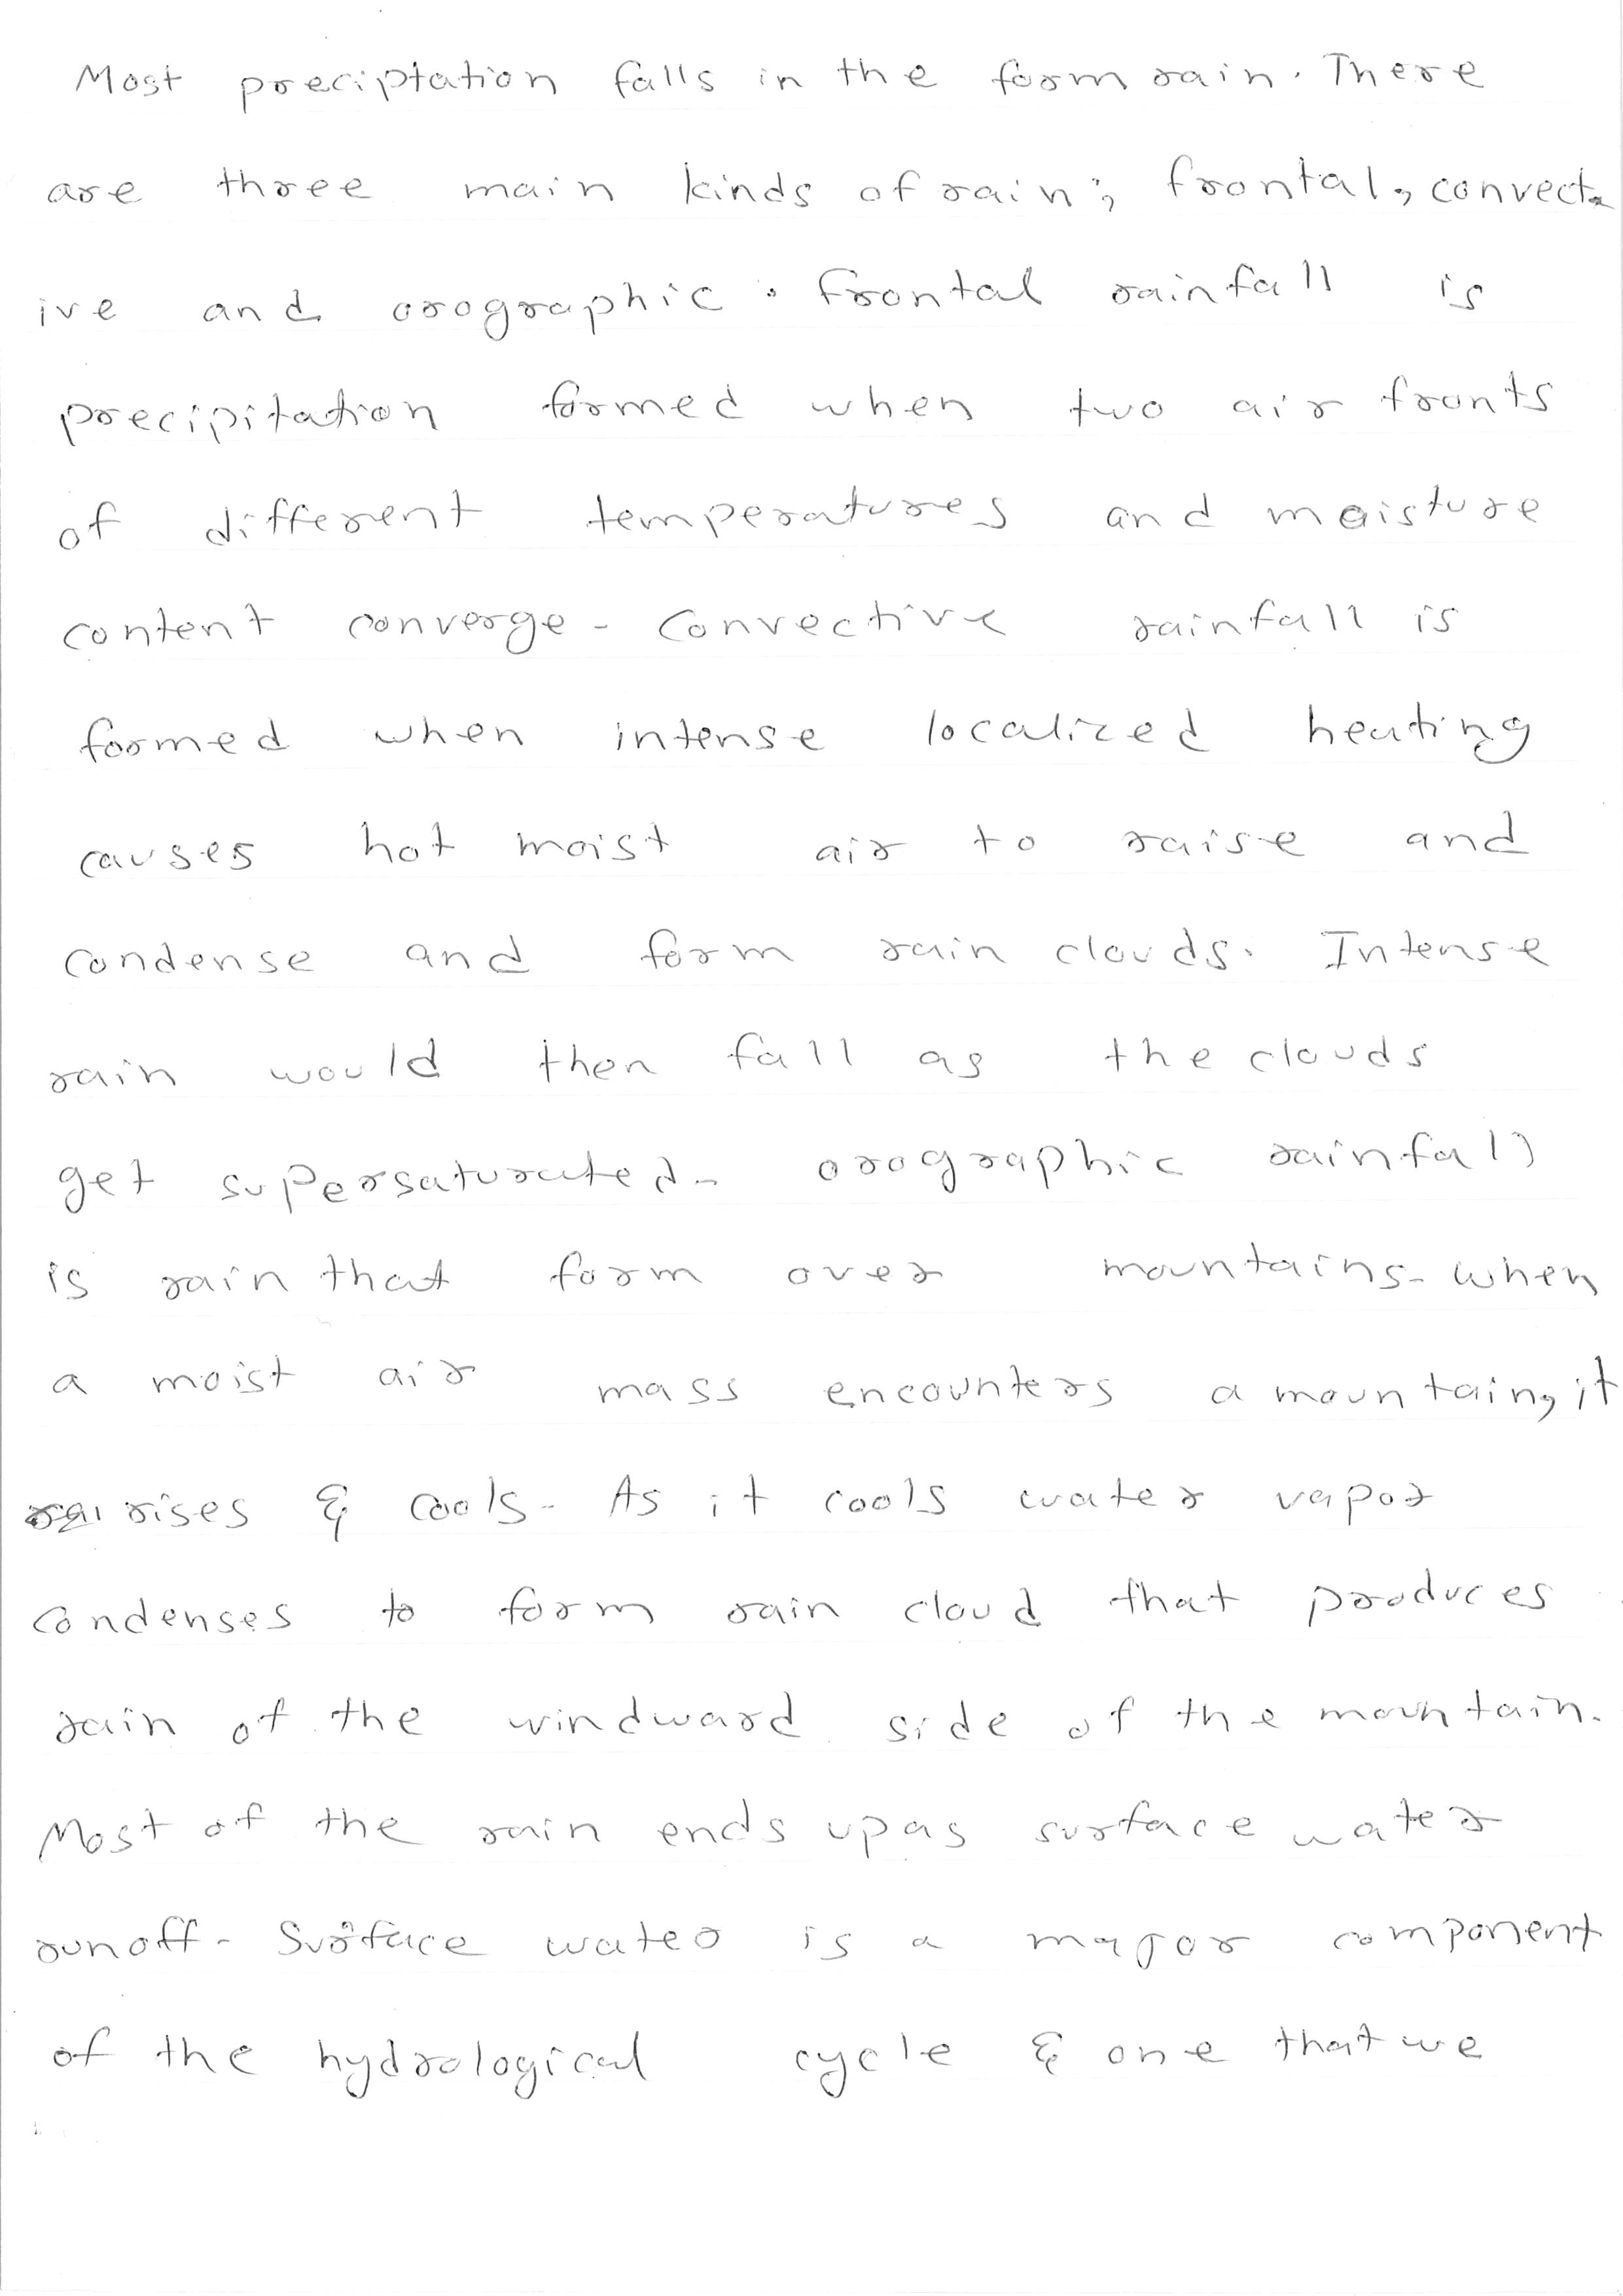 Most preciptation falls in the form rain. There
are three main kinds of rain; frontal, convect-
ive and orographic. frontal rainfall is
precipitation formed when two air fronts
of different temperatures and moisture
content converge. Convective rainfall is
formed when intense localized heating
causes hot moist air to raise and
condense and form rain clouds. Intense
rain would then fall as the clouds
get supersaturated. orographic rainfall
is rain that form over mountains. when
a moist air mass encounters a mountain, it
rises & cools. As it cools water vapor
condenses to form rain cloud that produces
rain of the windward side of the mountain.
Most of the rain ends up as surface water
runoff. Surface water is a major component
of the hydrological cycle & one that we